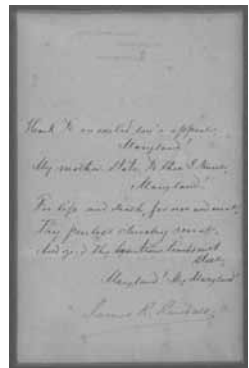 Hark to an exiled son's appeal,
Maryland!
My mother State, to thee I kneel,
Maryland!
For life and death, for woe and weal,
Thy peerless chivalry reveal,
And gird thy beauteous limbs with
steel,
Maryland! My Maryland!
James R. Randall.